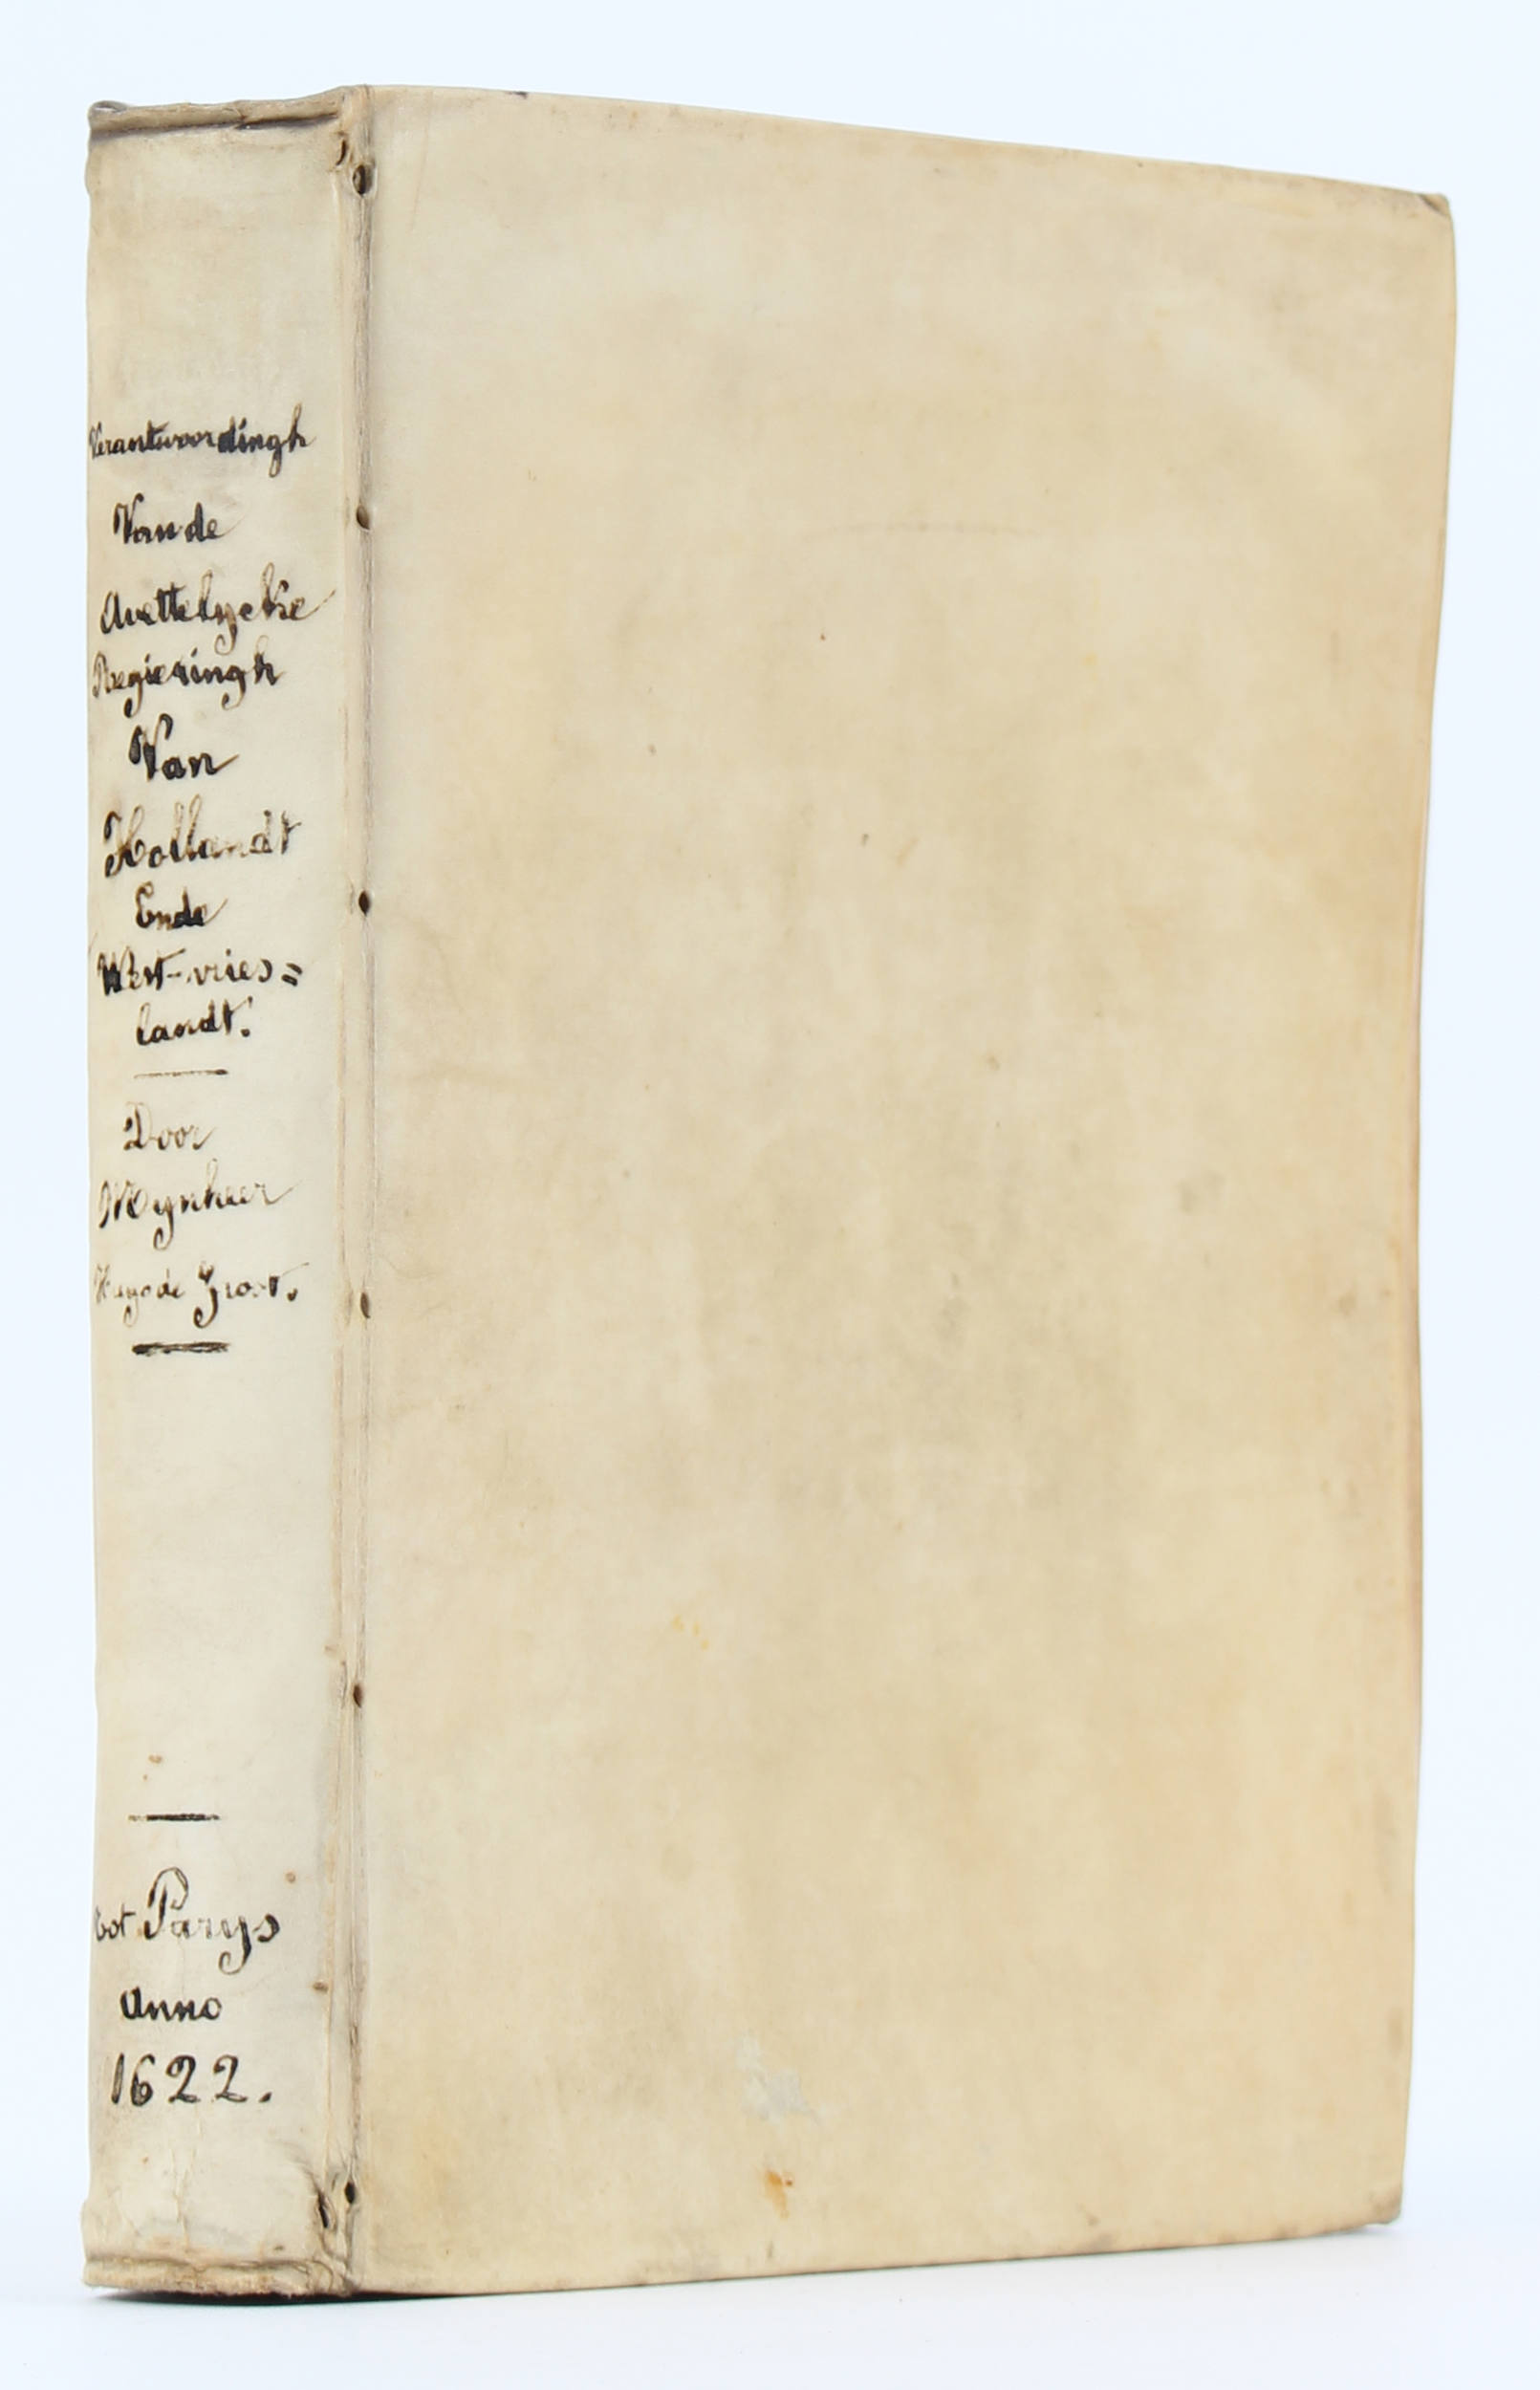 Verantwoordingh
Van de
Wettelycke
Regieringh
Van
Hollandt
Ende
West-vries=
landt.
Door
Mynheer
Hugo de Groot.
tot Parys
Anno
1622.